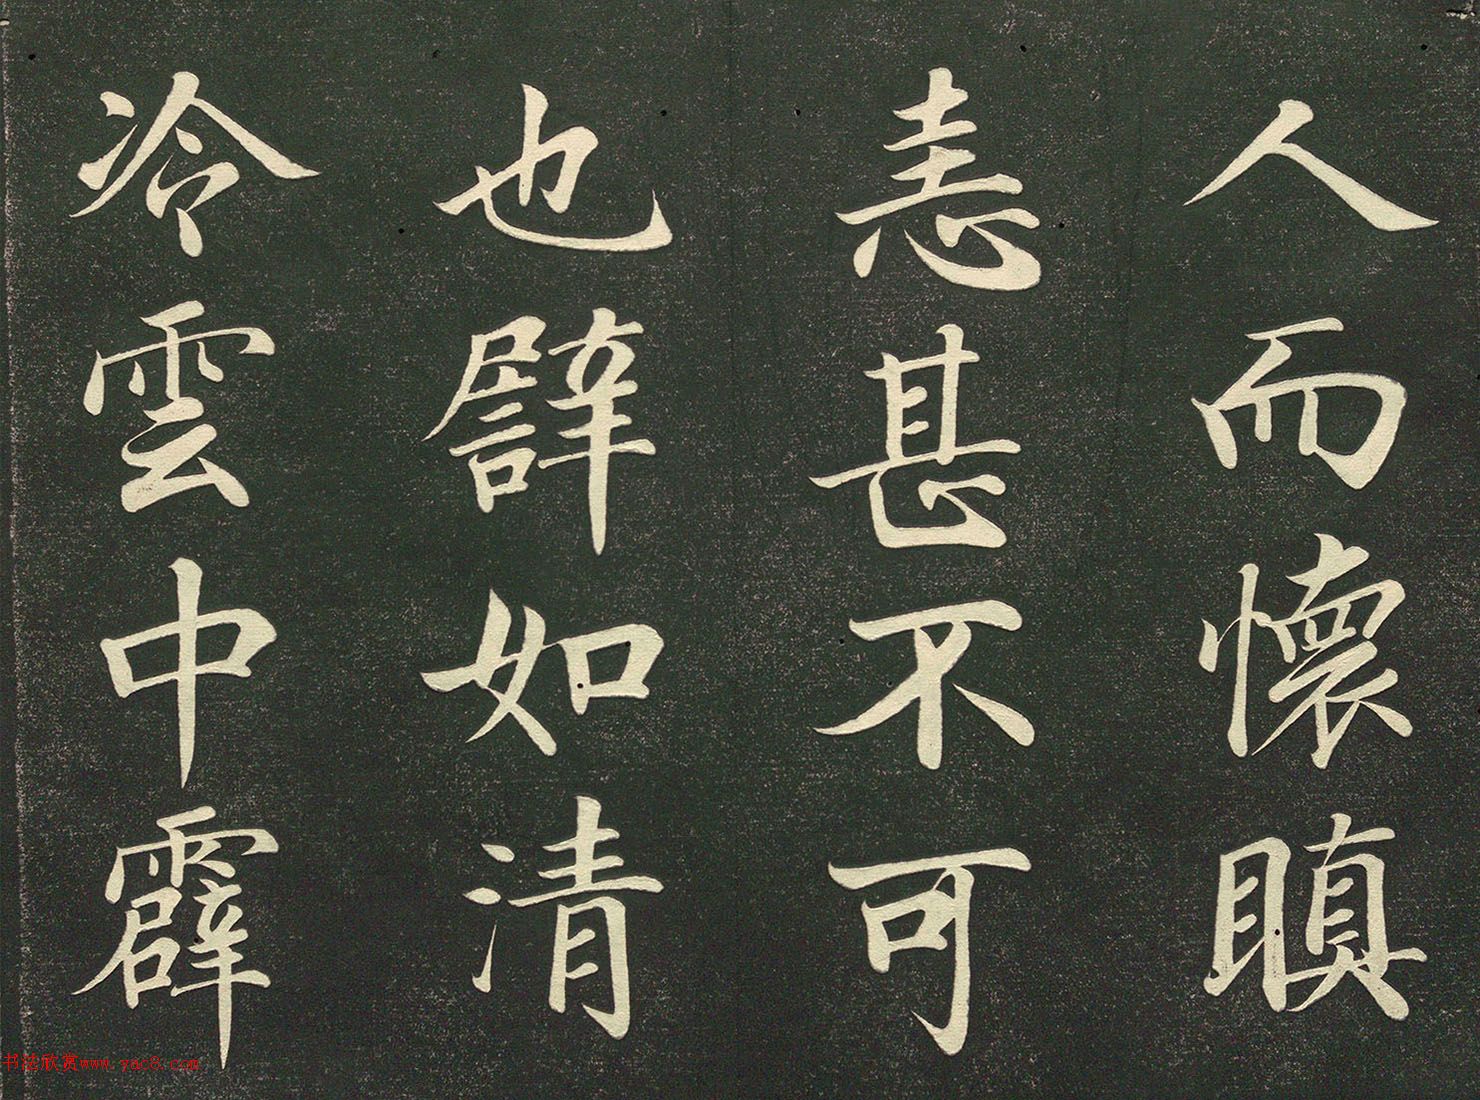 人而懷瞋
恚甚不可
也譬如清
冷雲中霹
书法欣赏www.yac8.com